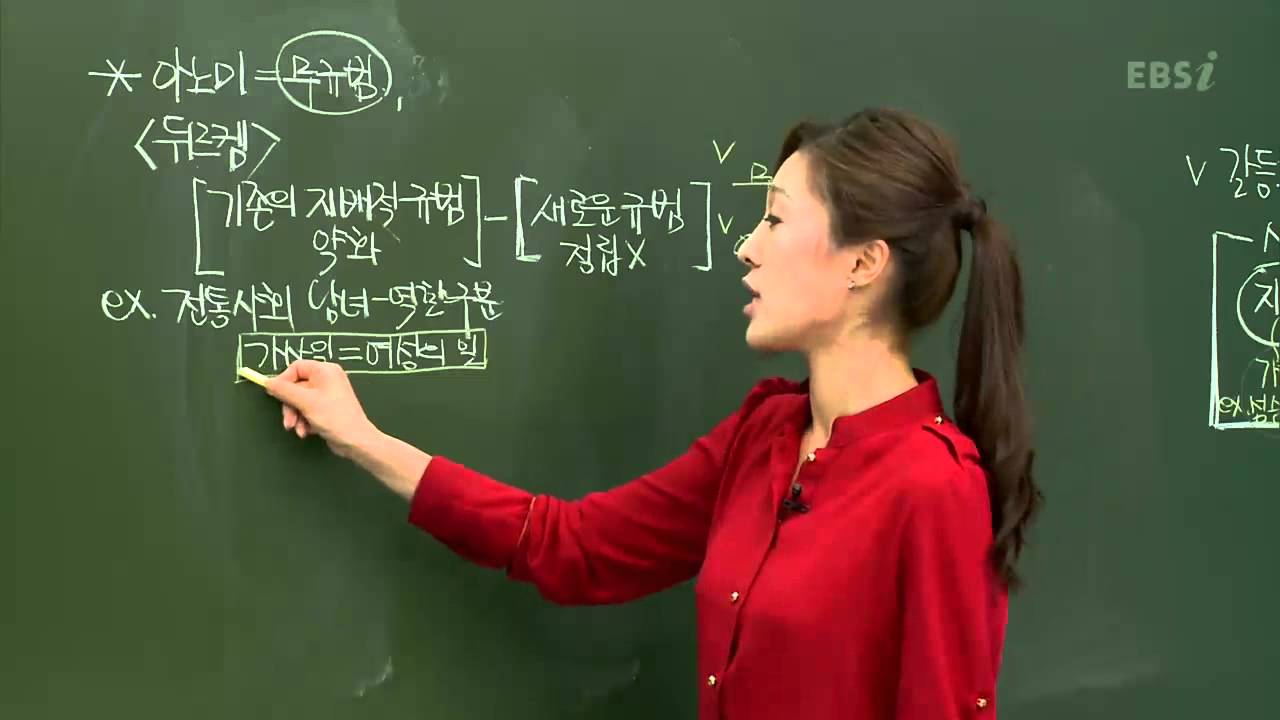 * 아노미 = 무규범,
<뒤르켐>
[기존의 지배적 규범 약화] - [새로운 규범 정립 X]
ex. 전통사회 남녀-역할 구분
가사일 = 여성의 일
EBSi
v
v
v 갈등